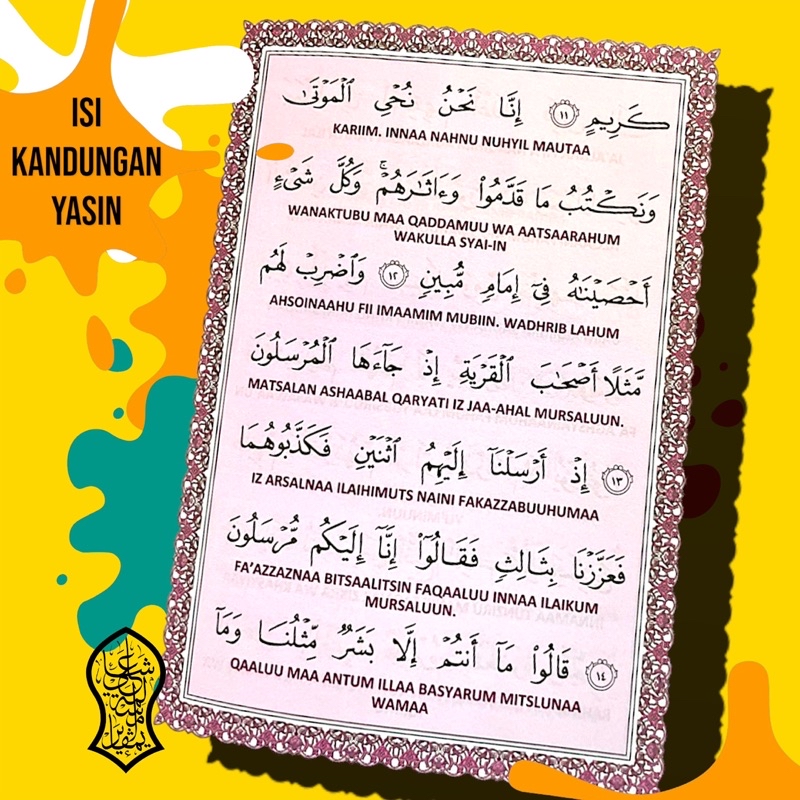 ISI
KANDUNGAN
YASIN
كَرِيمٍ ١١ إِنَّا نَحْنُ نُحْىِ ٱلْمَوْتَىٰ
KARIIM. INNAA NAHNU NUHYIL MAUTAA
وَنَكْتُبُ مَا قَدَّمُوا۟ وَءَاثَٰرَهُمْ ۚ وَكُلَّ شَىْءٍ
WANAKTUBU MAA QADDAMUU WA AATSAARAHUM
WAKULLA SYAI-IN
أَحْصَيْنَٰهُ فِىٓ إِمَامٍ مُّبِينٍ ١٢ وَٱضْرِبْ لَهُم
AHSOINAAHU FII IMAAMIM MUBIIN. WADHRIB LAHUM
مَّثَلًا أَصْحَٰبَ ٱلْقَرْيَةِ إِذْ جَآءَهَا ٱلْمُرْسَلُونَ
MATSALAN ASHAABAL QARYATI IZ JAA-AHAL MURSALUUN.
١٣ إِذْ أَرْسَلْنَآ إِلَيْهِمُ ٱثْنَيْنِ فَكَذَّبُوهُمَا
IZ ARSALNAA ILAIHIMUTS NAINI FAKAZZABUUHUMAA
فَعَزَّزْنَا بِثَالِثٍ فَقَالُوٓا۟ إِنَّآ إِلَيْكُم مُّرْسَلُونَ
FA'AZZAZNAA BITSAALITSIN FAQAALUU INNAA ILAIKUM
MURSALUUN.
١٤ قَالُوا۟ مَآ أَنتُمْ إِلَّا بَشَرٌ مِّثْلُنَا وَمَآ
QAALUU MAA ANTUM ILLAA BASYARUM MITSLUNAA
WAMAA